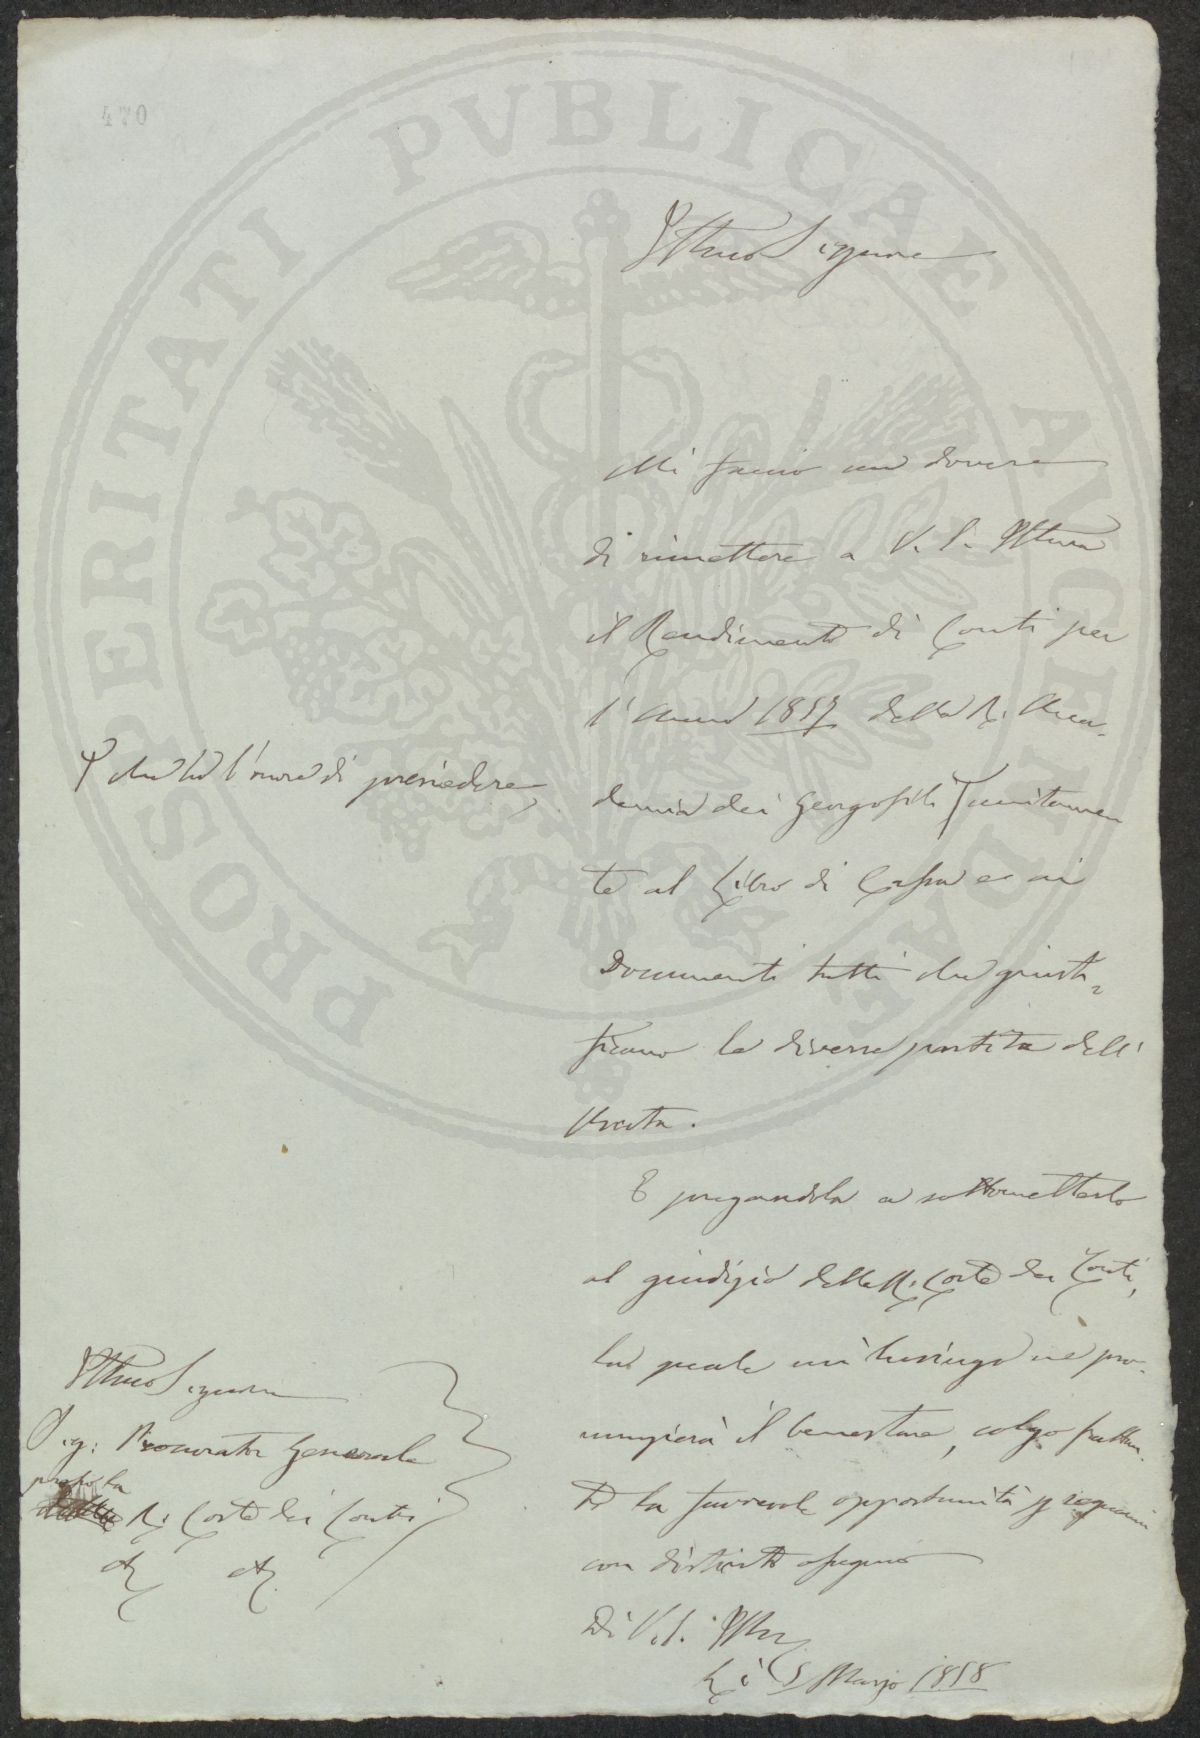 470
PROSPERITATI PVBLICAE AVGENDAE
Illmo Signore
Mi faccio un dovere
di rimettere a V. S. Illma
il Rendimento di Conti per
l'anno 1857 della R. Acca-
demia dei Georgofili unitamen
te al Libro di Cassa e ai
Documenti tutti che giusti-
ficano le diverse partite dell'
Uscita.
che ho l'onore di presiedere,
E pregandola a sottometterlo
al giudizio della R. Corte dei Conti,
la quale mi lusingo ne pro-
nunzierà il benestare, colgo frattan-
to la favorevole opportunità
con distinto ossequio
Di V. S. Illma
Li 5 Marzo 1858
Illmo Signore
Sig: Procurator Generale
presso la
R. Corte dei Conti